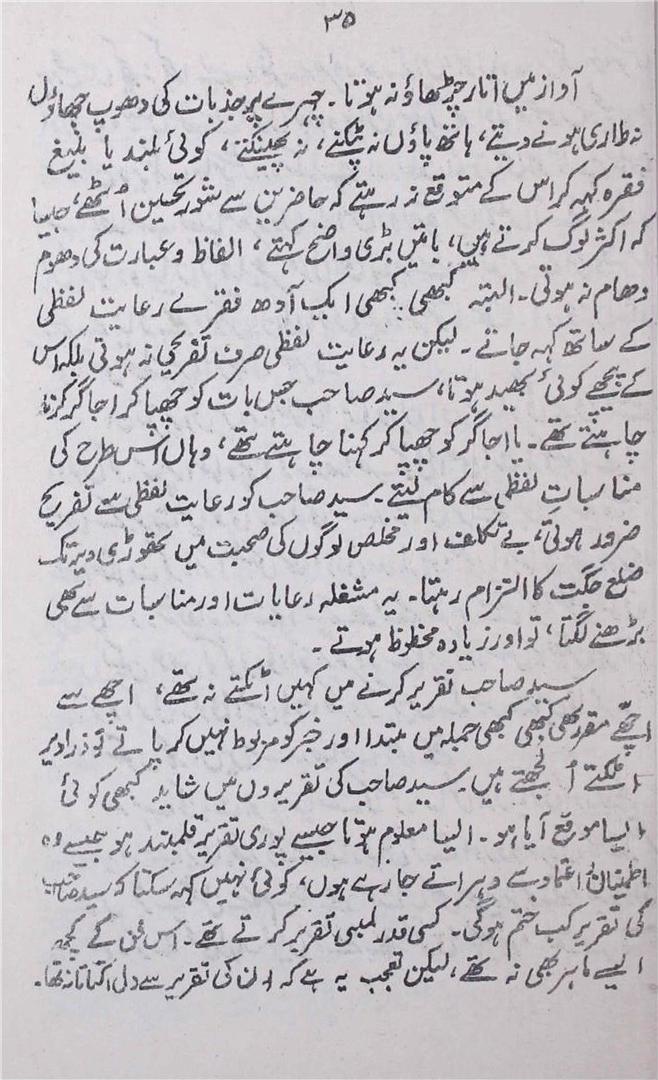 ۳۵
آواز میں اتار چڑھاؤ نہ ہوتا۔ چہرے پر جذبات کی دھوپ چھاؤں
نہ طاری ہونے دیتے، ہاتھ پاؤں نہ پٹکتے، نہ پھینکتے، کوئی بلند یا بلیغ
فقرہ کہہ کر اس کے متوقع نہ رہتے کہ حاضرین سے شور تحسین اُٹھے، جیسا
کہ اکثر لوگ کرتے ہیں، باتیں بڑی واضح کہتے، الفاظ و عبارت کی دھوم
دھام نہ ہوتی۔ البتہ کبھی کبھی ایک آدھ فقرے رعایت لفظی
کے ساتھ کہہ جاتے۔ لیکن یہ رعایت لفظی صرف تفریحی نہ ہوتی بلکہ اس
کے پیچھے کوئی بھید ہوتا، سید صاحب جس بات کو چھپا کر اجاگر کرنا
چاہتے تھے۔ یا اجاگر کو چھپا کر کہنا چاہتے تھے، وہاں اس طرح کی
مناسباتِ لفظی سے کام لیتے۔ سید صاحب کو رعایت لفظی سے تفریح
ضرور ہوتی، بے تکلف اور مخلص لوگوں کی صحبت میں تھوڑی دیر تک
ضلع جگت کا التزام رہتا۔ یہ مشغلہ رعایات اور مناسبات سے بھی
بڑھنے لگتا، تو اور زیادہ محظوظ ہوتے۔
سید صاحب تقریر کرنے میں کہیں اٹکتے نہ تھے، اچھے سے
اچھے مقرر بھی کبھی کبھی جملہ میں مبتدا اور خبر کو مربوط نہیں کر پاتے تو ذرا دیر
اٹکتے اُلجھتے ہیں۔ سید صاحب کی تقریروں میں شاید کبھی کوئی
ایسا موقع آیا ہو۔ ایسا معلوم ہوتا جیسے پوری تقریر قلمبند ہو جسے وہ
اطمینان و اعتماد سے دہراتے جا رہے ہوں، کوئی نہیں کہہ سکتا کہ سید صاحب
کی تقریر کب ختم ہوگی۔ کسی قدر لمبی تقریر کرتے تھے۔ اس فن کے کچھ
ایسے ماہر بھی نہ تھے، لیکن تعجب یہ ہے کہ ان کی تقریر سے دل اکتاتا نہ تھا۔